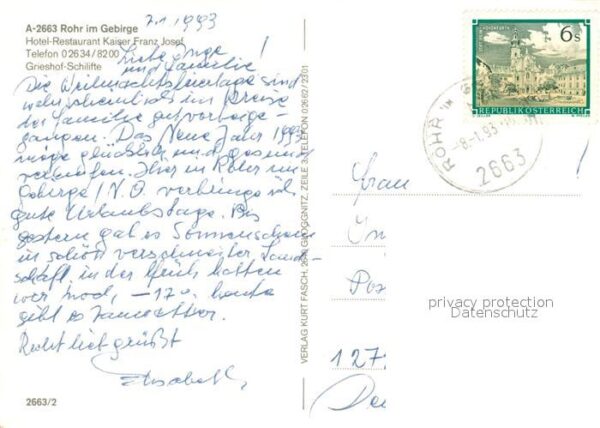 7.1.1993
A-2663 Rohr im Gebirge
Hotel-Restaurant Kaiser Franz Josef
Telefon 02634/8200
Grieshof-Schilifte
Liebe Inge !
und Familie
Die Weihnachtsfeiertage sind
im Kreise
der Familie gut vorüberge-
gangen. Das Neue Jahr 1993
möge glücklich und gesund
verlaufen. Hier in Rohr im
Gebirge / N.Ö. verbringe ich
gute Urlaubstage. Bis
gestern gab es Sonnenschein
in schön verschneiter Land-
schaft, in der Früh hatten
wir noch -17° heute
gibt es
Recht lieb grüßt
Elisabeth
2663/2
VERLAG KURT FASCH, 2640 GLOGGNITZ, ZEILE 3, TELEFON 02662/2301
6s
REPUBLIK ÖSTERREICH
ROHR
-8.-1.93
2663
Frau
!
In
Pos
127
De
privacy protection
Datenschutz